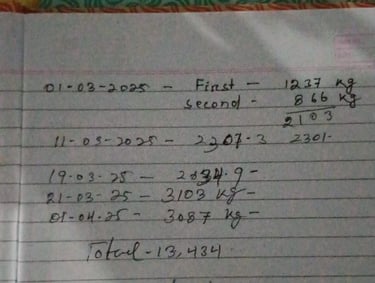 01-03-2025 - First - 1237 kg
Second - 866 kg
2103
11-03-2025 - 2207.3 2301.
19-03-25 - 2934.9 -
21-03-25 - 3103 kg -
01-04-25 - 3087 kg -
Total - 13,434